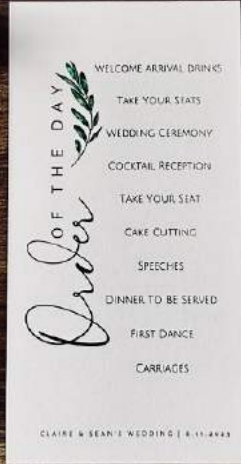 Order OF THE DAY
WELCOME ARRIVAL DRINKS
TAKE YOUR SEATS
WEDDING CEREMONY
COCKTAIL RECEPTION
TAKE YOUR SEAT
CAKE CUTTING
SPEECHES
DINNER TO BE SERVED
FIRST DANCE
CARRIAGES
CLAIRE & SEAN'S WEDDING |